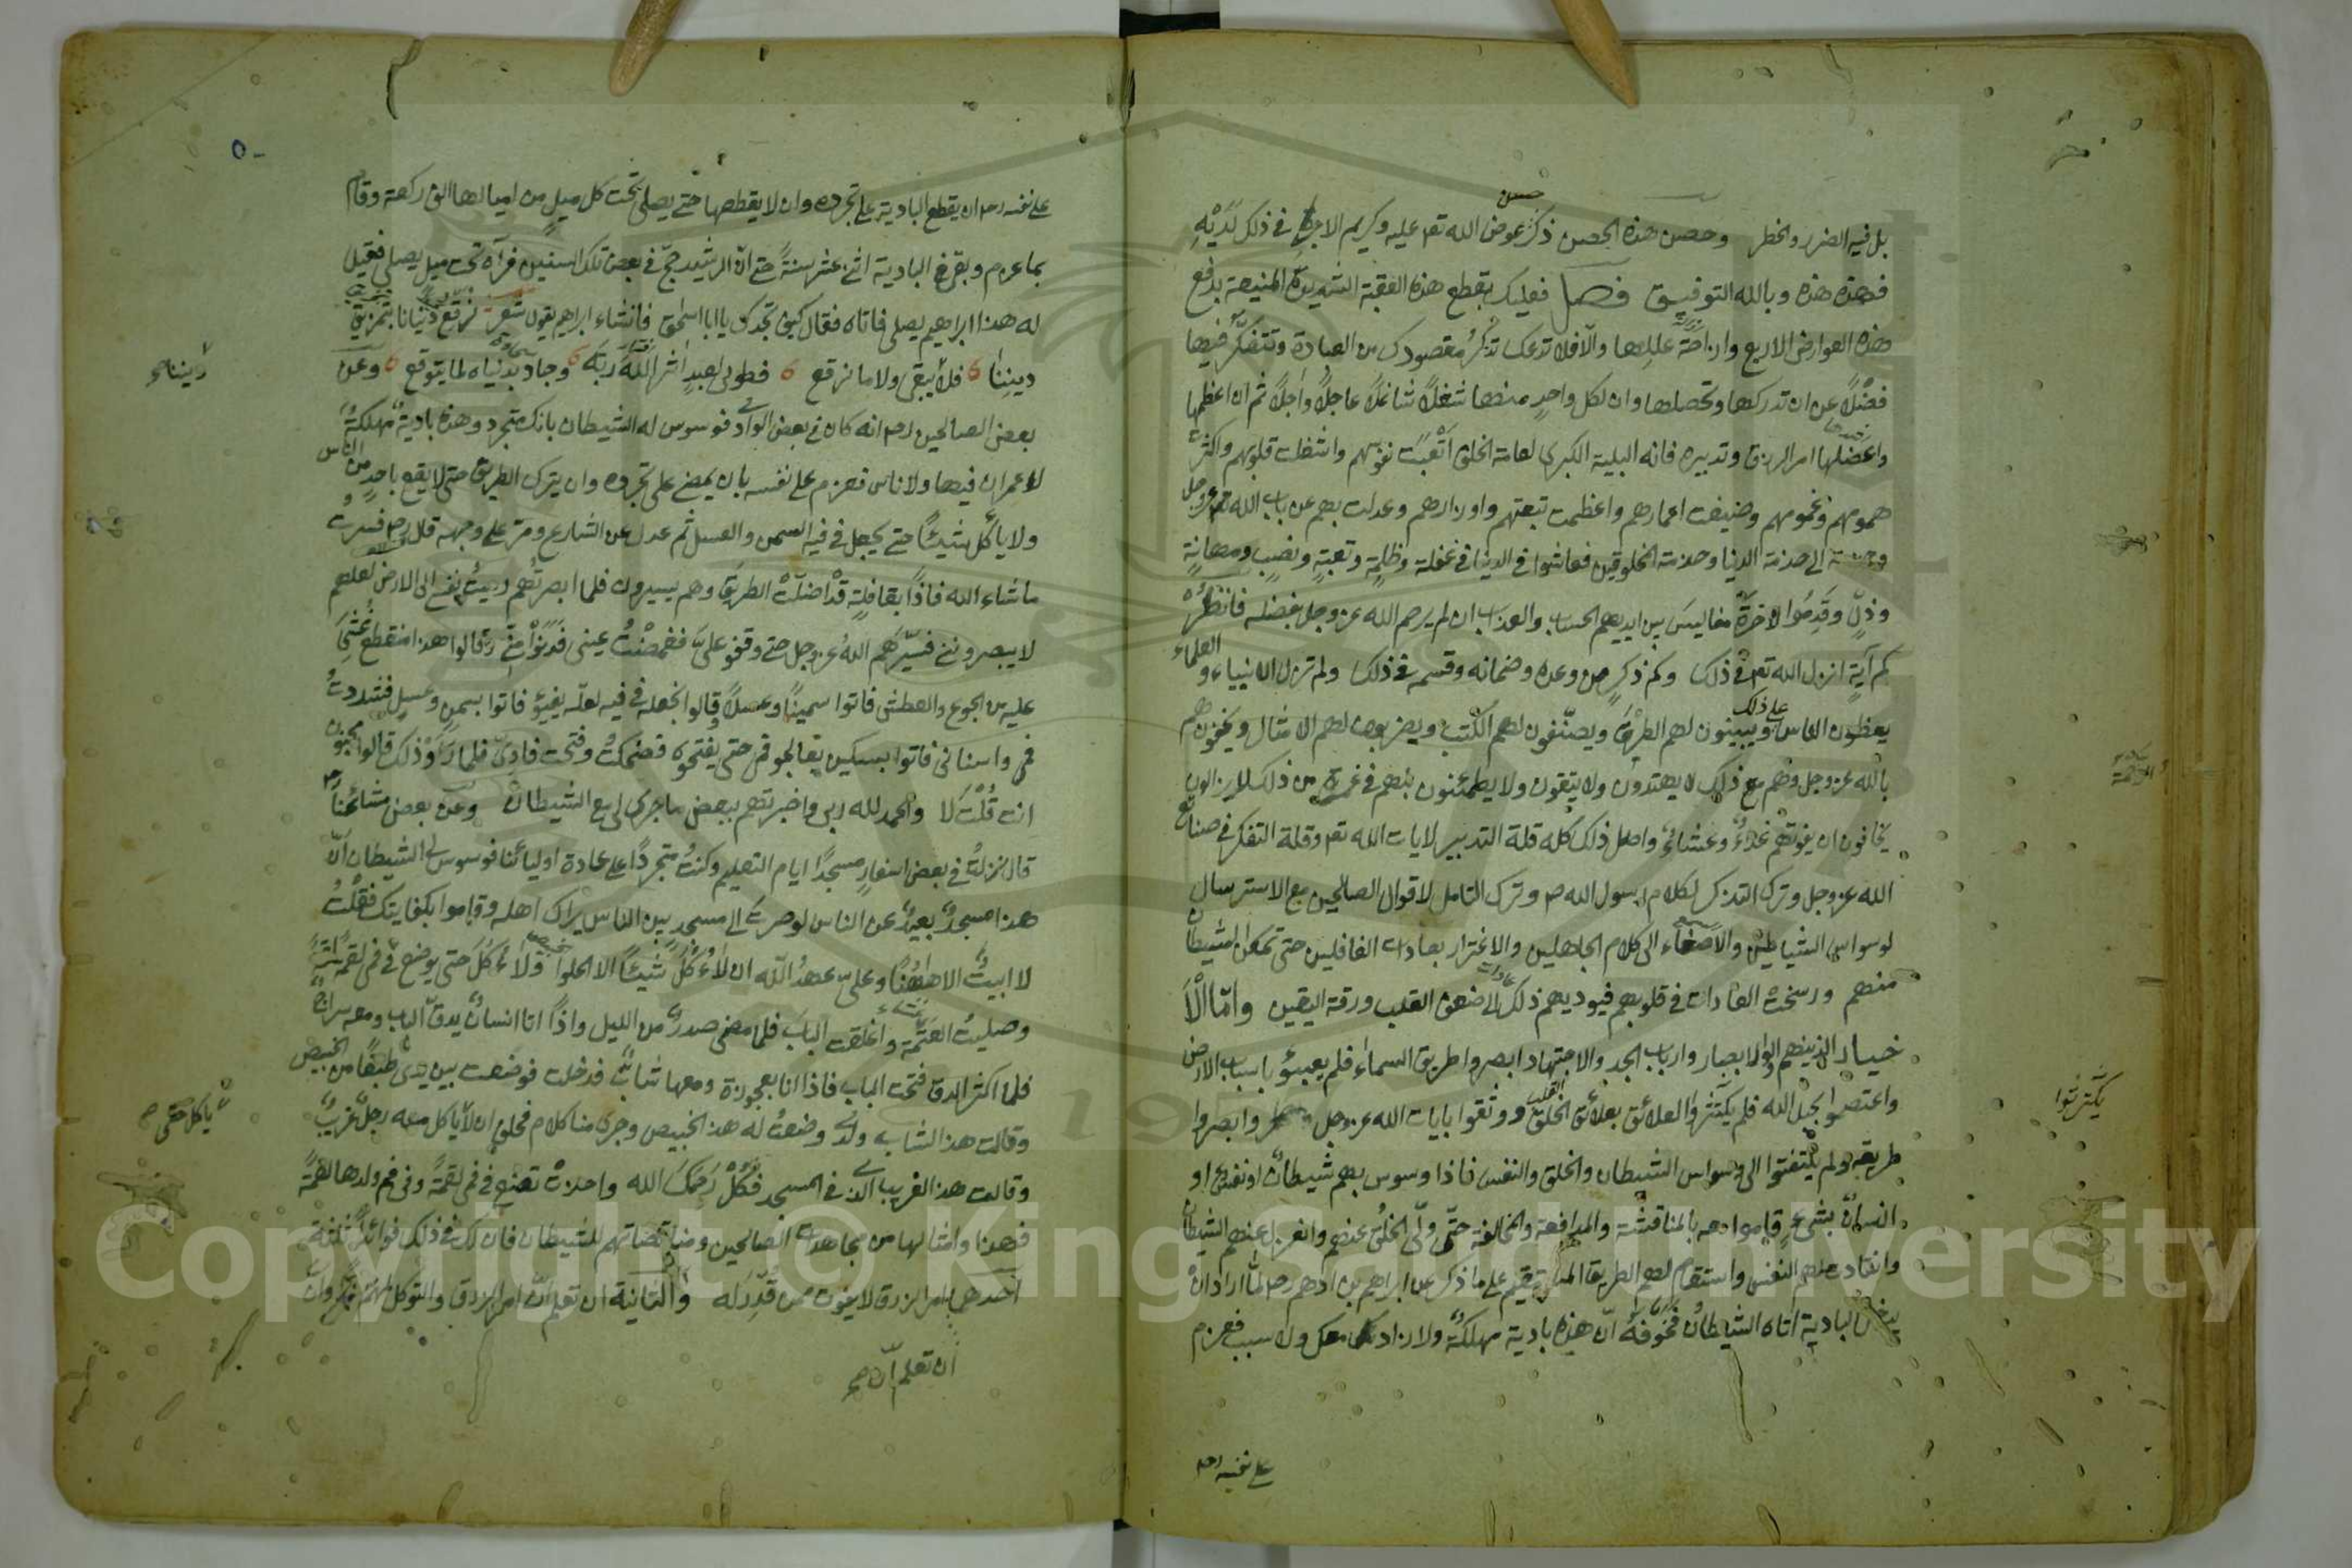 بل فيه الضرر والخطر وحصن هذه الحصن ذكر حسن عوض الله تعه عليه وكريم الاجر في ذلك لديه
فهذه هذه وبالله التوفيق فصل فعليك بقطع هذه العقبة الشديدة المنيعة بدفع
هذه العوارض الاربع وازاحة عللها والّا فلا تدعك تذكر مقصودك من العبادة وتتفكّر فيها
فضلًا عن ان تدركها وتحصلها وان لكل واحدٍ منها شغلًا شاغلًا عاجلًا وآجلًا ثم ان اعظمها
واعضلها امر الرزق وتدبيره فانه البلية الكبرى لعامة الخلق اتعبت نفوسهم واشغلت قلوبهم واكثرت
همومهم وغمومهم وضيعت اعمارهم واعظمت تبعتهم واوزارهم وعدلت بهم عن باب الله عزوجل
الى خدمة الدنيا وخدمة المخلوقين فعاشوا في الدنيا في غفلة وظلمة وتعبةٍ ونصبٍ ومهانةٍ
وذلٍّ وقدموا الاخرة مفاليس بين ايديهم الحساب والعذاب ان لم يرحم الله عزوجل بفضله فانظر
كم آيةٍ انزل الله تعه في ذلك وكم ذكر من وعده وضمانه وقسمه في ذلك ولم تزل الانبياء والعلماء
يعظون الناس على ذلك ويبينون لهم الطريق ويصنّفون لهم الكتب ويضربون لهم الامثال ويخوفونهم
بالله عزوجل وهم مع ذلك لا يهتدون ولا يتقون ولا يطمئنون بل هم في غمرة من ذلك لا يزالون
يخافون ان يفوتهم غداءٌ وعشاءٌ واصل ذلك كله قلة التدبير لايات الله تعه وقلة التفكر في صنائع
الله عزوجل وترك التذكر لكلام رسول الله صم وترك التامل لاقوال الصالحين مع الاسترسال
لوسواس الشياطين والاصغاء الى كلام الجاهلين والاغترار بعادات الغافلين حتى تمكن الشيطان
منهم ورسخت العادات في قلوبهم فيوديهم ذلك الى ضعف القلب ورقة اليقين وامّا الا
خيار الذين هم اولوا الابصار وارباب الجد والاجتهاد ابصروا طريق السماء فلم يعبئو باسباب الارض
واعتصموا بحبل الله فلم يكترثوا العلائق بعلائق الخلق ووثقوا بايات الله عزوجل وابصروا
يكترثوا
طريقه ولم يلتفتوا الى وسواس الشيطان والخلق والنفس فاذا وسوس بهم شيطانٌ او نفسٌ او
انسانٌ بشيءٍ قاموا معه بالمناقشة والمدافعة والمخالفة حتّى ولّى الخلق عنهم وانعزل عنهم الشيطان
وانقادت لهم النفس واستقام لهم الطريق المستقيم على ما ذكر عن ابراهيم بن ادهم رحه لمّا اراد ان
يدخل البادية اتاه الشيطان فخوفه انّ هذه بادية مهلكةٌ ولا زاد معك ولا سبب فعزم
على نفسه رحه
على نفسه رحه ان يقطع البادية على تجرده وان لا يقطعها حتى يصلى تحت كل ميلٍ من اميالها الف ركعة وقام
بما عزم وبقى في البادية اثنى عشر سنةً حتى انّ الرشيد حجّ في بعض تلك السنين فرآه تحت ميلٍ يصلى فقيل
له هذا ابراهيم يصلى فاتاه فقال كيف تجدك يا ابا اسحق فانشاء ابراهيم يقول شعر نرقع دنيانا بتمزيق
ديننا فلا ديننا يبقى ولا ما نرقع فطوبى لعبدٍ آثر الله ربّه وجاد بدنياه لما يتوقع وعن
ديننا صح
بعض الصالحين رحه انه كان في بعض البوادى فوسوس له الشيطان بانك متجرد وهذه باديةٌ مهلكةٌ
لا عمران فيها ولا ناس فعزم على نفسه بان يمضى على تجرده وان يترك الطريق حتى لا يقع باحدٍ من الناس
ولا ياكل شيئًا حتى يجعل في فيه السمن والعسل ثم عدل عن الشارع ومرّ على وجهه قال رحه فسرت
ما شاء الله فاذا بقافلةٍ قد اضلّت الطريق وهم يسيرون فلما ابصرتهم رميت نفسي الى الارض لعلهم
لا يبصرونني فسيّرهم الله عزوجل حتى وقفوا علىّ فغمضت عينى فدنوا منّى وقالوا هذا منقطع غشي
عليه من الجوع والعطش فاتوا سمينًا وعسلًا قالوا نجعله في فيه لعله يفيق فاتوا بسمنٍ وعسلٍ فشددت
فمى واسنانى فاتوا بسكين يعالجو فمى حتى يفتحوه فضحكت وفتحت فادىّ فلما راوا ذلك قالوا مجنون
انت قلت لا والحمد لله ربى واخبرتهم ببعض ما جرى لى مع الشيطان وعن بعض مشائخنا رحه
قال نزلت في بعض اسفارٍ مسجدًا ايام التعليم وكنت متجردًا على عادة اوليائنا فوسوس لى الشيطان انّ
هذا مسجدٌ بعيدٌ عن الناس لو صرت الى مسجدٍ بين الناس يراك اهله وقاموا بكفايتك فقلت
لا ابيت الا ههنا وعلىّ عهد الله ان لا اكل شيئًا الا الحلوا ولا اكل حتى يوضع في فمى لقمةً لقمةً
وصليت العتمة واغلقت الباب فلما مضى صدرٌ من الليل واذا انا انسانٌ يدقّ الباب ومعه سراجٌ
فلما اكثر الدق فتحت الباب فاذا انا بعجوزة ومعها شابٌّ فدخلت فوضعت بين يدىّ طبقًا من الخبيص
وقالت هذا الشاب ولدى وضعتُ له هذا الخبيص وجرى منا كلام فحلف ان لا ياكل معه رجلٌ غريبٌ
ياكل حتى صح
وقالت هذا الغريب الذى في المسجد فكل رحمك الله واخذت تضع في فمى لقمةً وفى فم ولدها لقمةً
فهذا وامثالها من مجاهدات الصالحين ومناقضاتهم للشيطان فان لك في ذلك فوائدُ ثلثة
احدهما امر الرزق لا يفوت ممن قُدِّر له والثانية ان تعلم انّ امر الرزق والتوكل مهمّ
ان تعلم انّ صح
٥٠
Copyright © King Saud University